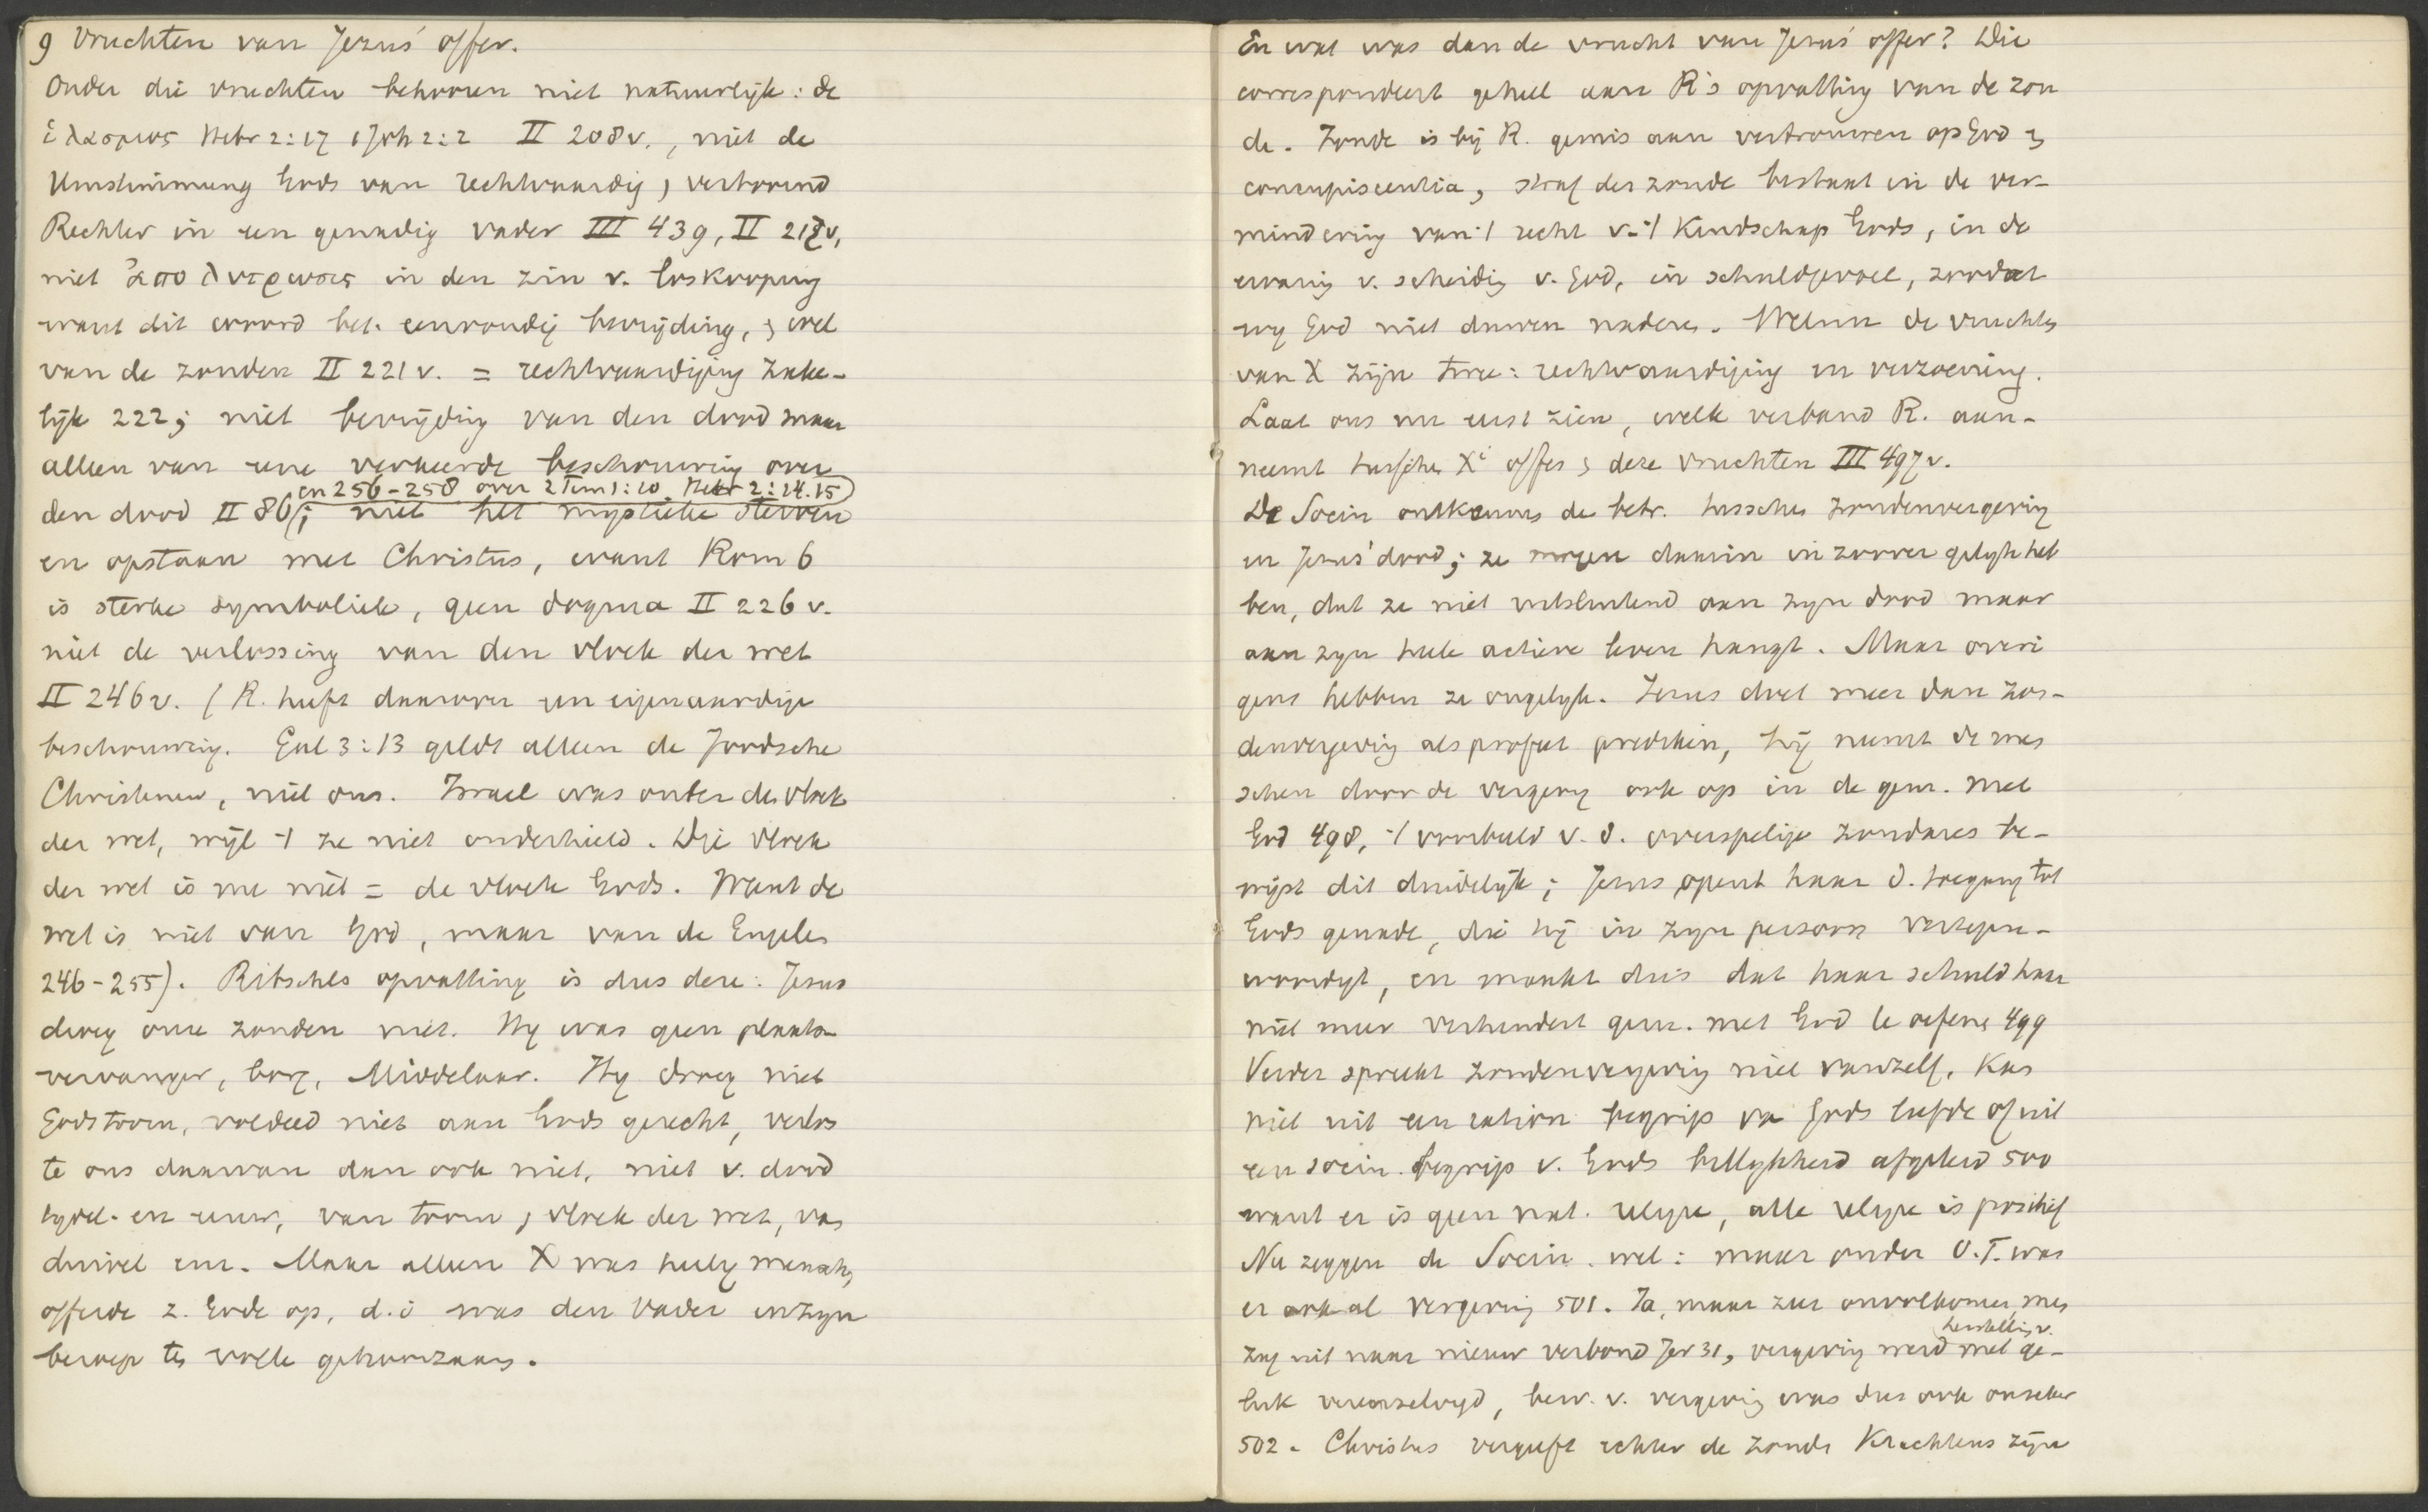 9 Vruchten van Jezus' offer.
Onder die vruchten behooren niet natuurlijk: de
ἱλασμος Hebr 2:17 1 Joh 2:2 II 208v., niet de
Umstimmung Gods van rechtvaardig, vertoornd
Rechter in een genadig vader III 439, II 217v,
niet ἀπολυτρωσις in den zin v. loskooping
want dit woord bet. eenvoudig bevrijding, & wel
van de zonden II 221 v. = rechtvaardiging zake-
lijk 222; niet bevrijding van den dood maar
alleen van eene verkeerde beschouwing over
en 256-258 over 2 Tim 1:10. Hebr 2:14.15
den dood II 86; niet het mystieke sterven
en opstaan met Christus, want Rom 6
is sterke symboliek, geen dogma II 226 v.
niet de verlossing van den vloek der wet
II 246 v. (R. heeft daarover een eigenaardige
beschouwing. Gal 3:13 geldt alleen de Joodsche
Christenen, niet ons. Israel was onder de vloek
der wet, wijl 't ze niet onderhield. Die vloek
der wet is nu niet = de vloek Gods. Want de
wet is niet van God, maar van de Engelen
246-255). Ritschls opvatting is dus deze: Jesus
droeg onze zonden niet. Hy was geen plaats-
vervanger, borg, Middelaar. Hy droeg niet
Gods toorn, voldeed niet aan Gods gerecht, verlos
te ons daarvan dan ook niet, niet v. dood
tydel. en eeuw, van toorn, vloek der wet, van
duivel enz. Maar alleen X was heilig mensch,
offerde z. Gode op, d.i was den Vader in zyn
beroep ten volle gehoorzaam.
En wat was dan de vrucht van Jesus' offer? Die
correspondeert geheel aan R's opvatting van de zon
de. Zonde is bij R. gemis aan vertrouwen op God &
concupiscentia, straf der zonde bestaat in de ver-
mindering van 't recht v. 't Kindschap Gods, in de
ervaring v. scheiding v. God, in schuldgevoel, zoodat
wy God niet durven naderen. Welnu de vruchten
van X zijn twee: rechtvaardiging en verzoening.
Laat ons nu eerst zien, welk verband R. aan-
neemt tusschen Xi offer & deze vruchten III 497v.
De Socin ontkennen de betr. tusschen zondenvergeving
en Jesus' dood; ze mogen daarin in zoover gelyk heb
ben, dat ze niet uitsluitend aan zyn dood maar
aan zyn hele actieve leven hangt. Maar overi
gens hebben ze ongelyk. Jesus doet meer dan zon-
denvergeving als profeet prediken, hij neemt de men
schen door de vergeving ook op in de gem. met
God 498, 't voorbeeld v. d. overspelige zondares be-
wijst dit duidelijk; Jesus opent haar d. toegang tot
Gods genade, die hij in zyn persoon vertegen-
woordigt, en maakt dus dat haar schuld haar
niet meer verhindert gem. met God te oefenen 499
Verder spreekt zondenvergeving niet vanzelf, kan
niet uit een ration begrip van Gods liefde of uit
een socin. begrip v. Gods billykheid afgeleid 500
want er is geen nat. religie, alle religie is positief
Nu zeggen de Socin. wel: maar onder O.T. was
er ook al vergeving 501. Ja, maar zeer onvolkomen, men
herstelling v.
zag uit naar nieuw verbond Jer 31, vergeving werd met ge-
luk vereenzelvigd, bew. v. vergeving was dus ook onzeker
502. Christus vergeeft echter de zonde krachtens zijn